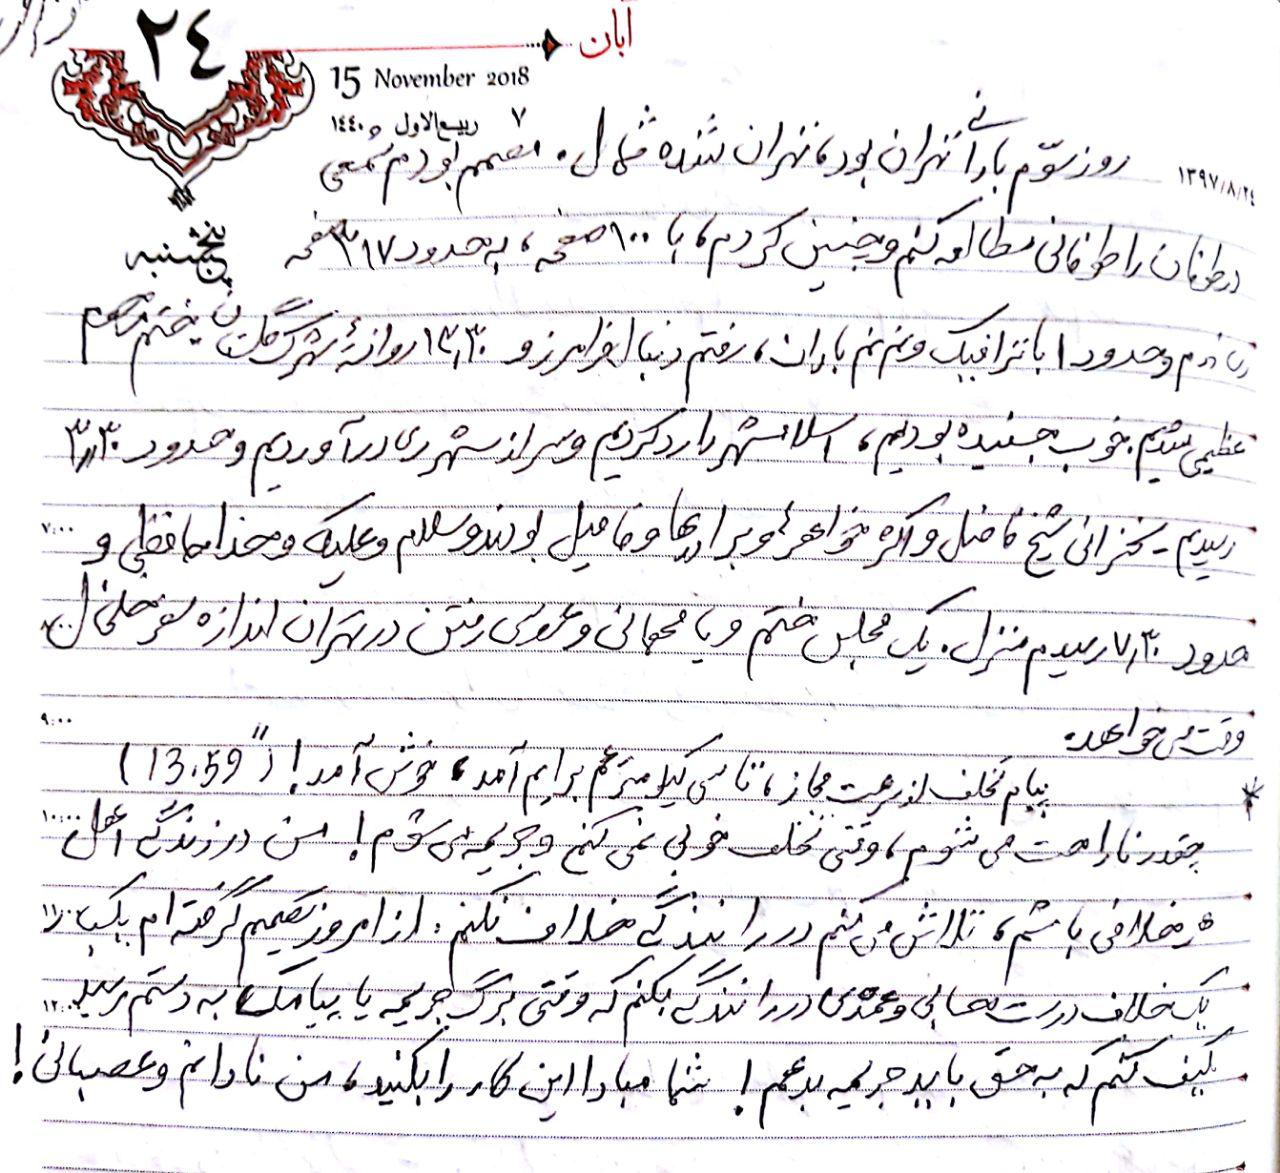 ۲٤
آبان
15 November 2018
۷ ربیع‌الاول ۱٤٤۰
پنجشنبه
۱۳۹۷/۸/۲٤
روز سوّم بارانی تهران بود، تهران شده شمال. مصمم بودم شمعی
در طوفان را طوفانی مطالعه کنم و چنین کردم، با ۱۰۰ صفحه، به حدود ۳۱۷ صفحه
و حدود ۱ با ترافیک و نم نم باران، رفتم دنبال فرامرز و ۱۳٫۳۰ روانهٔ شهرک گلستان ختم
عظیمی شدیم. خوب جنبیده بودیم، اسلامشهر را رد کردیم و سر از شهر ری درآوردیم و حدود ۳٫۳۰
رسیدیم - سخنرانی شیخ فاضل و اکره خواهرها و برادرها و فامیل بودند و سلام و علیک و خداحافظی و
۷:۰۰
حدود ۷٫۳۰ رسیدم منزل. یک مجلس ختم و یا مهمانی و عروسی رفتن در تهران اندازه سفر خلخال
وقت می‌خواهد.
۹:۰۰
* پیام تخلف از سرعت مجاز، تا سی کیلومتر هم برایم آمد، خوش آمد! (13.59")
چقدر ناراحت می شوم، وقتی تخلف خوبی نمی کنم و جریمه می شوم! من در زندگی اهل
۱۰:۰۰
هر خلافی باشم، تلاش می کنم در رانندگی خلاف نکنم. از امروز تصمیم گرفته ام یک
۱۱:۰۰
یک خلاف درست حسابی و عمدی در رانندگی بکنم که وقتی برگ جریمه یا پیامک به دستم رسید
۱۲:۰۰
کیف کنم که به حق باید جریمه بدهم! شما مبادا این کار را بکنید، من نادانم و عصبانی!